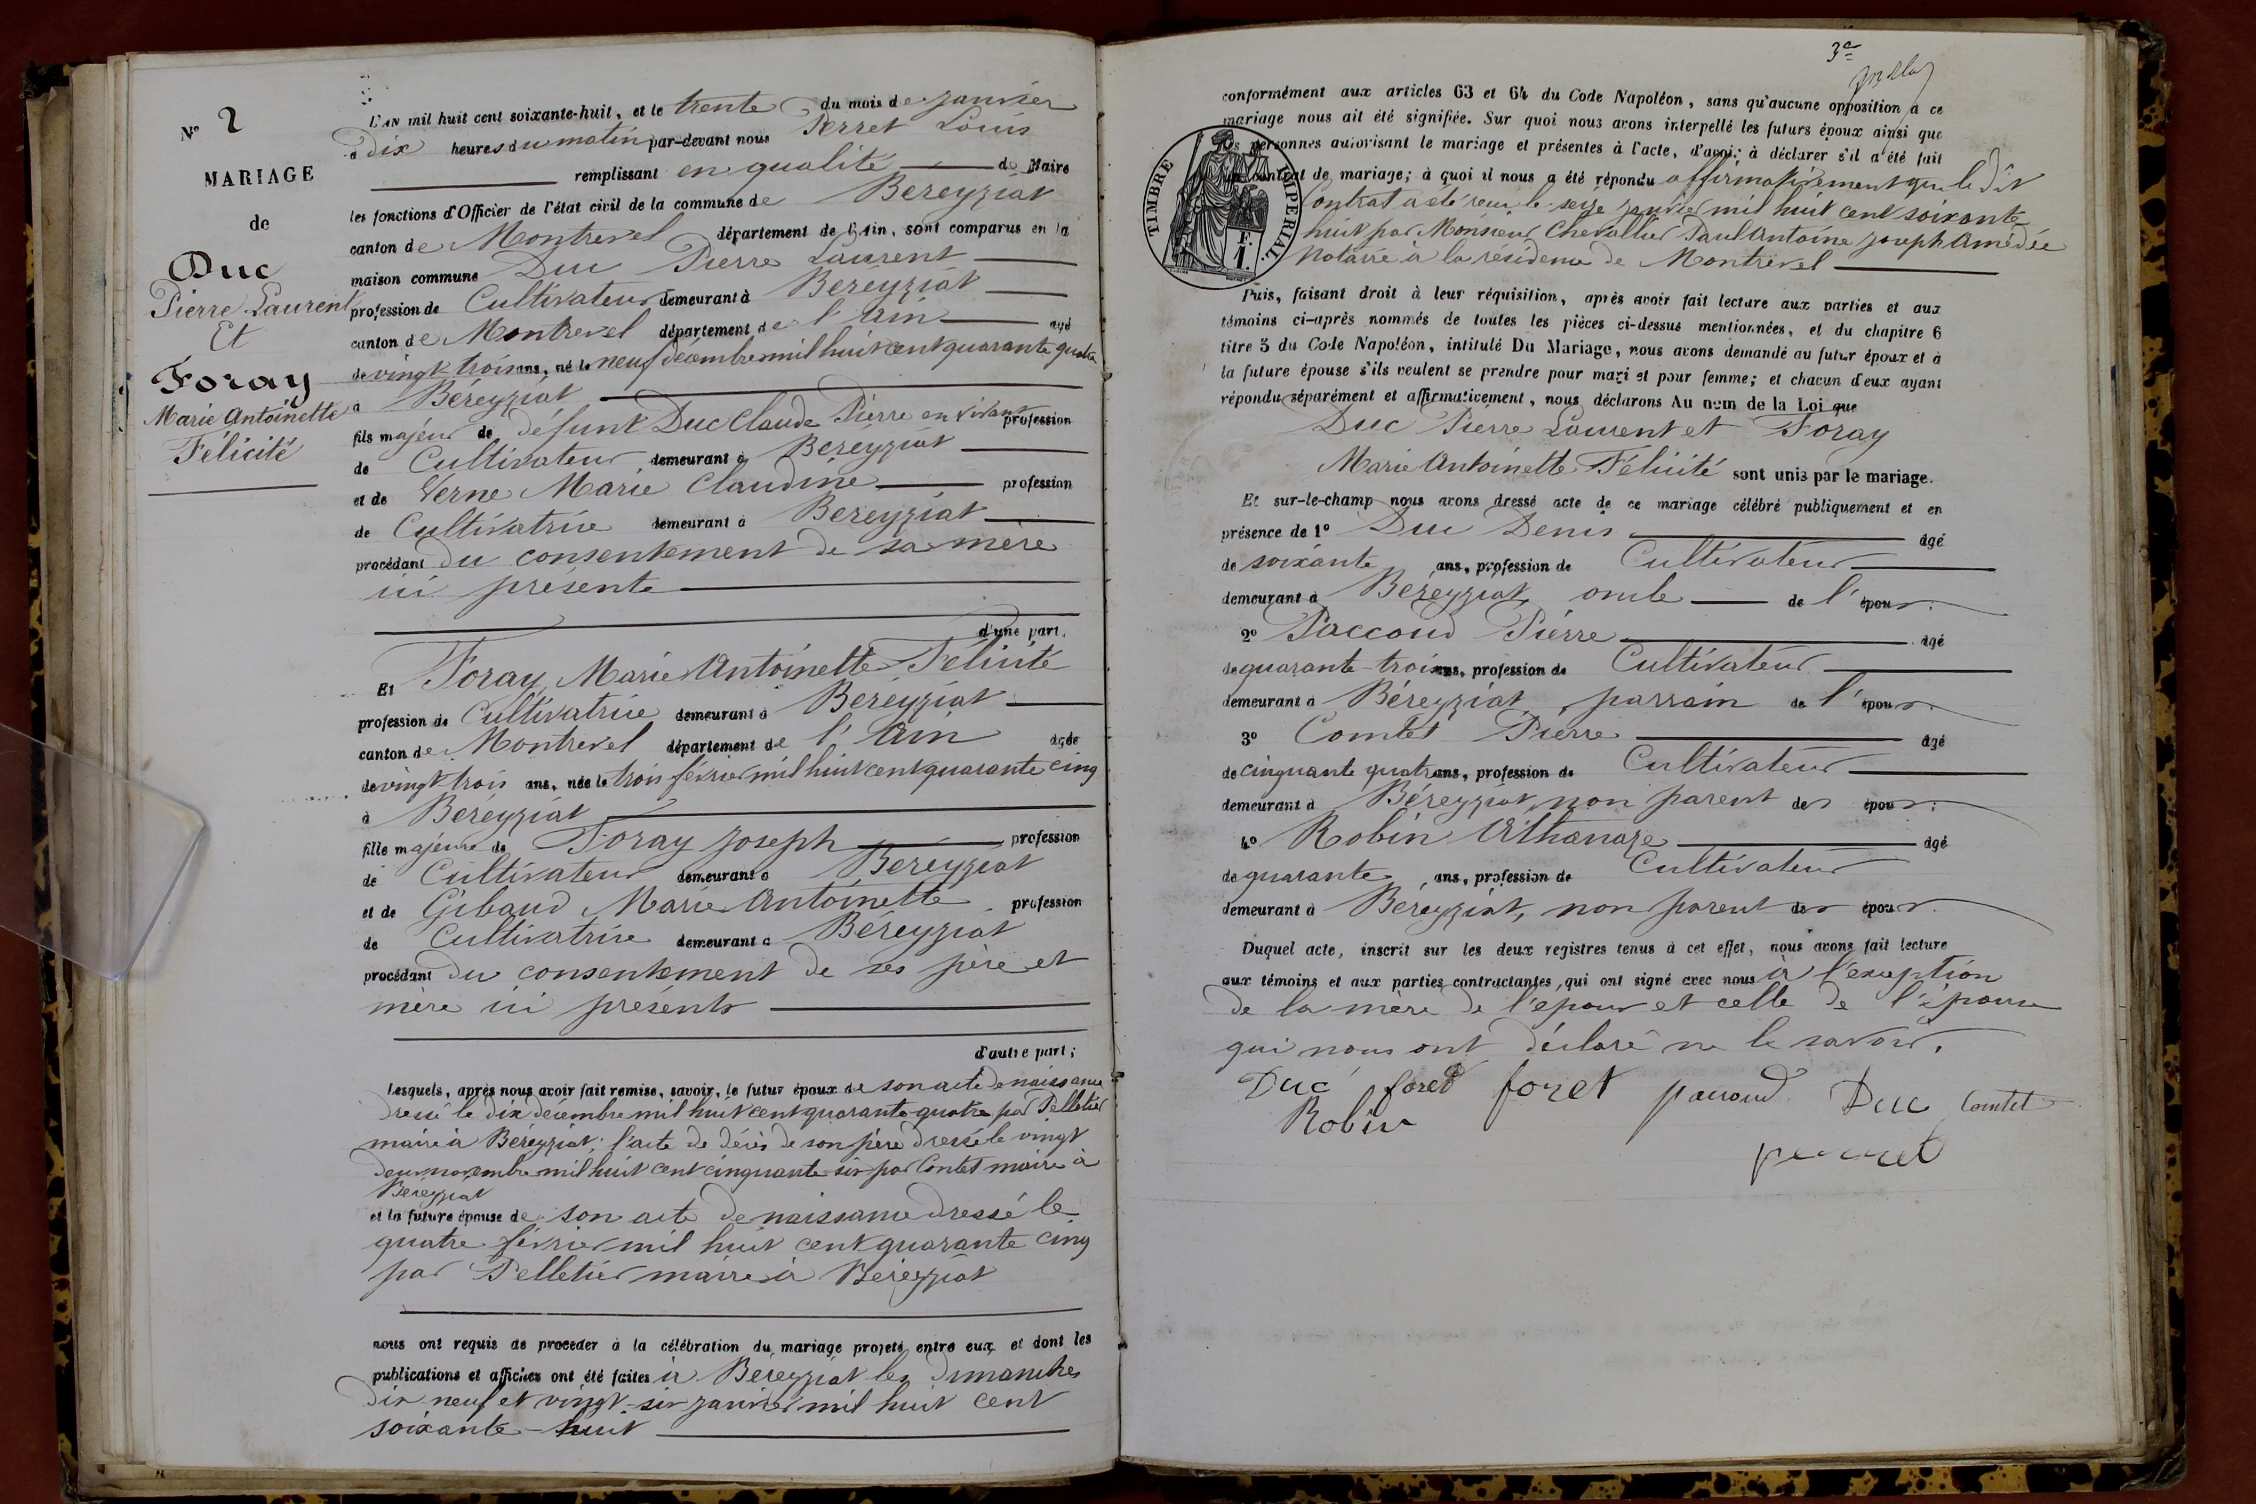 N° 2
MARIAGE
de
Duc
Pierre Laurent
Et
Foray
Marie Antoinette
Félicité
L'AN mil huit cent soixante-huit, et le trente du mois de janvier
à dix heures du matin par-devant nous Perret Louis
remplissant en qualité de Maire
les fonctions d'Officier de l'état civil de la commune de Béréyziat
canton de Montrevel département de l'Ain, sont comparus en la
maison commune Duc Pierre Laurent
profession de Cultivateur demeurant à Béréyziat
canton de Montrevel département de l'Ain agé
de vingt trois ans, né le neuf décembre mil huit cent quarante quatre
à Béréyziat
fils majeur de défunt Duc Claude Pierre en vivant profession
de Cultivateur demeurant à Béréyziat
et de Verne Marie Claudine profession
de Cultivatrice demeurant à Béréyziat
procédant du consentement de sa mère
ici présente
d'une part.
Et Foray Marie Antoinette Félicité
profession de Cultivatrice demeurant à Béréyziat
canton de Montrevel département de l'Ain agée
de vingt trois ans, née le trois février mil huit cent quarante cinq
à Béréyziat
fille majeure de Foray Joseph profession
de Cultivateur demeurant à Béréyziat
et de Gibaud Marie Antoinette profession
de Cultivatrice demeurant à Béréyziat
procédant du consentement de ses père et
mère ici présents
d'autre part;
Lesquels, après nous avoir fait remise, savoir, le futur époux de son acte de naissance
dressé le dix décembre mil huit cent quarante-quatre par Pelletier
maire à Béréyziat; l'acte de décès de son père dressé le vingt
deux novembre mil huit cent cinquante six par Contet maire à
Béréyziat
et la future épouse de son acte de naissance dressé le
quatre février mil huit cent quarante cinq
par Pelletier maire à Béréyziat
nous ont requis de proceder à la célébration du mariage projeté entre eux et dont les
publications et affiches ont été faites à Béréyziat les dimanches
dix neuf et vingt-six janvier mil huit cent
soixante-huit
3e
conformément aux articles 63 et 64 du Code Napoléon, sans qu'aucune opposition à ce
mariage nous ait été signifiée. Sur quoi nous avons interpellé les futurs époux ainsi que
les personnes autorisant le mariage et présentes à l'acte, d'avoir à déclarer s'il a été fait
un contrat de mariage; à quoi il nous a été répondu affirmativement que le dit
Contrat a été reçu le seize janvier mil huit cent soixante
huit par Monsieur Chevallier Paul Antoine Joseph Amédée
Notaire à la résidence de Montrevel
TIMBRE IMPERIAL
F.
1.
Puis, faisant droit à leur réquisition, après avoir fait lecture aux parties et aux
témoins ci-après nommés de toutes les pièces ci-dessus mentionnées, et du chapitre 6
titre 5 du Code Napoléon, intitulé Du Mariage, nous avons demandé au futur époux et à
la future épouse s'ils veulent se prendre pour mari et pour femme; et chacun d'eux ayant
répondu séparément et affirmativement, nous déclarons Au nom de la Loi que
Duc Pierre Laurent et Foray
Marie Antoinette Félicité sont unis par le mariage.
Et sur-le-champ nous avons dressé acte de ce mariage célébré publiquement et en
présence de 1° Duc Denis agé
de soixante ans, profession de Cultivateur
demeurant à Béréyziat, oncle de l'époux.
2° Paccoud Pierre agé
de quarante-trois ans, profession de Cultivateur
demeurant à Béréyziat, parrain de l'époux.
3° Comtet Pierre agé
de cinquante quatre ans, profession de Cultivateur
demeurant à Béréyziat, non parent des époux;
4° Robin Athanaze agé
de quarante ans, profession de Cultivateur
demeurant à Béréyziat, non parent des époux.
Duquel acte, inscrit sur les deux registres tenus à cet effet, nous avons fait lecture
aux témoins et aux parties contractantes, qui ont signé avec nous à l'exception
de la mère de l'époux et celle de l'épouse
qui nous ont déclaré ne le savoir.
Duc foret foret paccoud Duc Comtet
Robin
perret